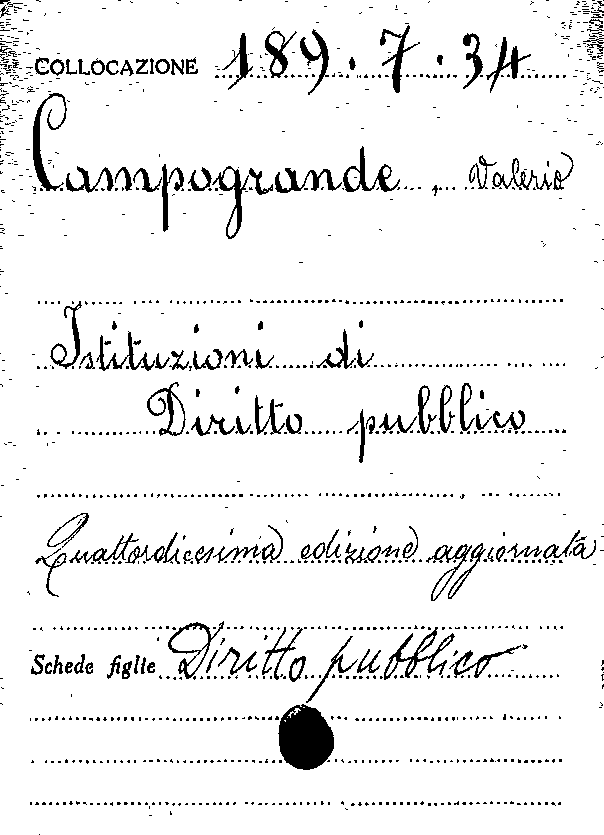 COLLOCAZIONE 189.7.34
Campogrande, Valerio
Istituzioni di
Diritto pubblico
Quattordicesima edizione aggiornata
Schede figlie Diritto pubblico